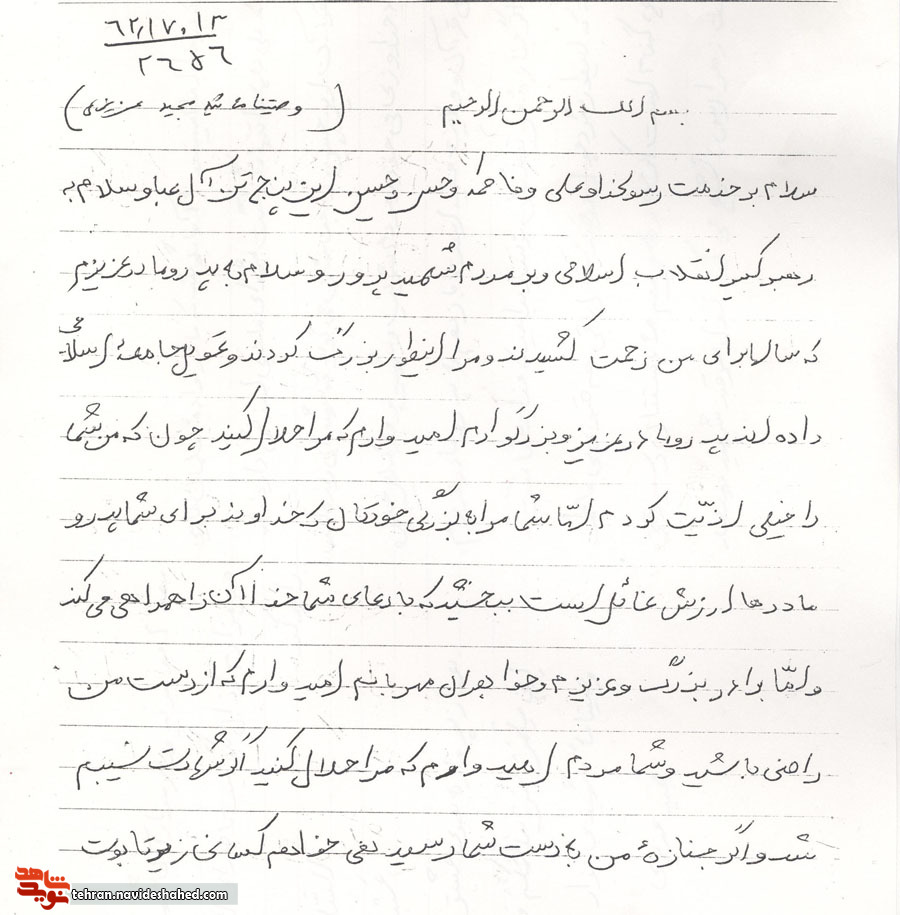 ۶۲,۱۷,۱۳
۲۶۵۶
بسم اللـه الرحمن الرحیم (وصیتنامهٔ شهید مجید عزیزی)
سلام بر خدمت رسولخدا و علی و فاطمه و حسن و حسین این پنج تن آل عبا و سلام به
رهبر کبیر انقلاب اسلامی و بر مردم شهید پرور و سلام به پدر و مادر عزیزم
که سالها برای من زحمت کشیدند و مرا اینطور بزرگ کردند و تحویل جامعهٔ اسلامی
داده اند پدر و مادر عزیز و بزرگوارم امیدوارم که مرا حلال کنید چون که من شما
را خیلی اذیّت کردم امّا شما مرا به بزرگی خودتان که خداوند برای شما پدر و
مادرها ارزش قائل است ببخشید که با دعای شما خدا آن را همراهی می کند
و امّا برادر بزرگ و عزیزم و خواهران مهربانم امیدوارم که از دست من
راضی باشید و شما مردم امیدوارم که مرا حلال کنید اگر شهادت نسیبم
شد و اگر جنازهٔ من به دست شما رسید نمی خواهم کسانی زیر تابوت
شاهد
نوید
tehran.navideshahed.com